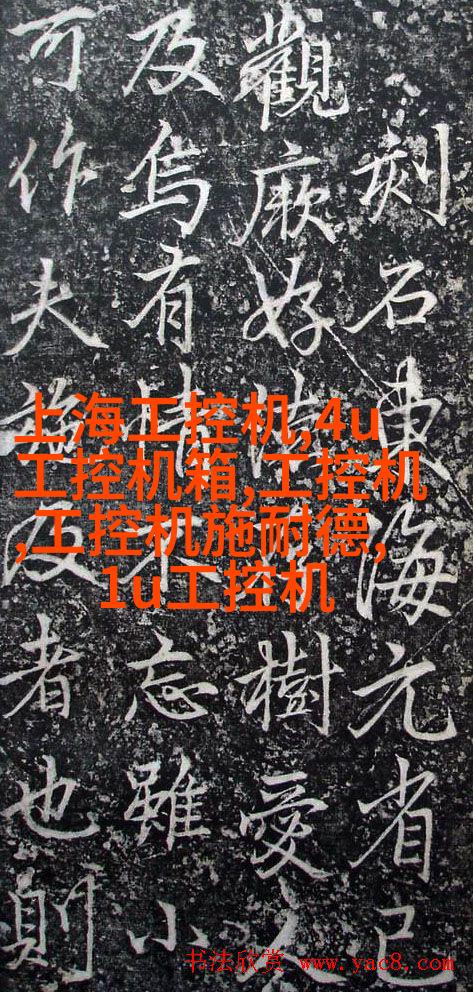 刻石東海元省已
觀厥好樹愛
及烏有情不忘雖小
可作夫施及者也則
上海工控机,4u
工控机箱,工控机
,工控机施耐德,
1u工控机
书法欣赏 www.yac8.com